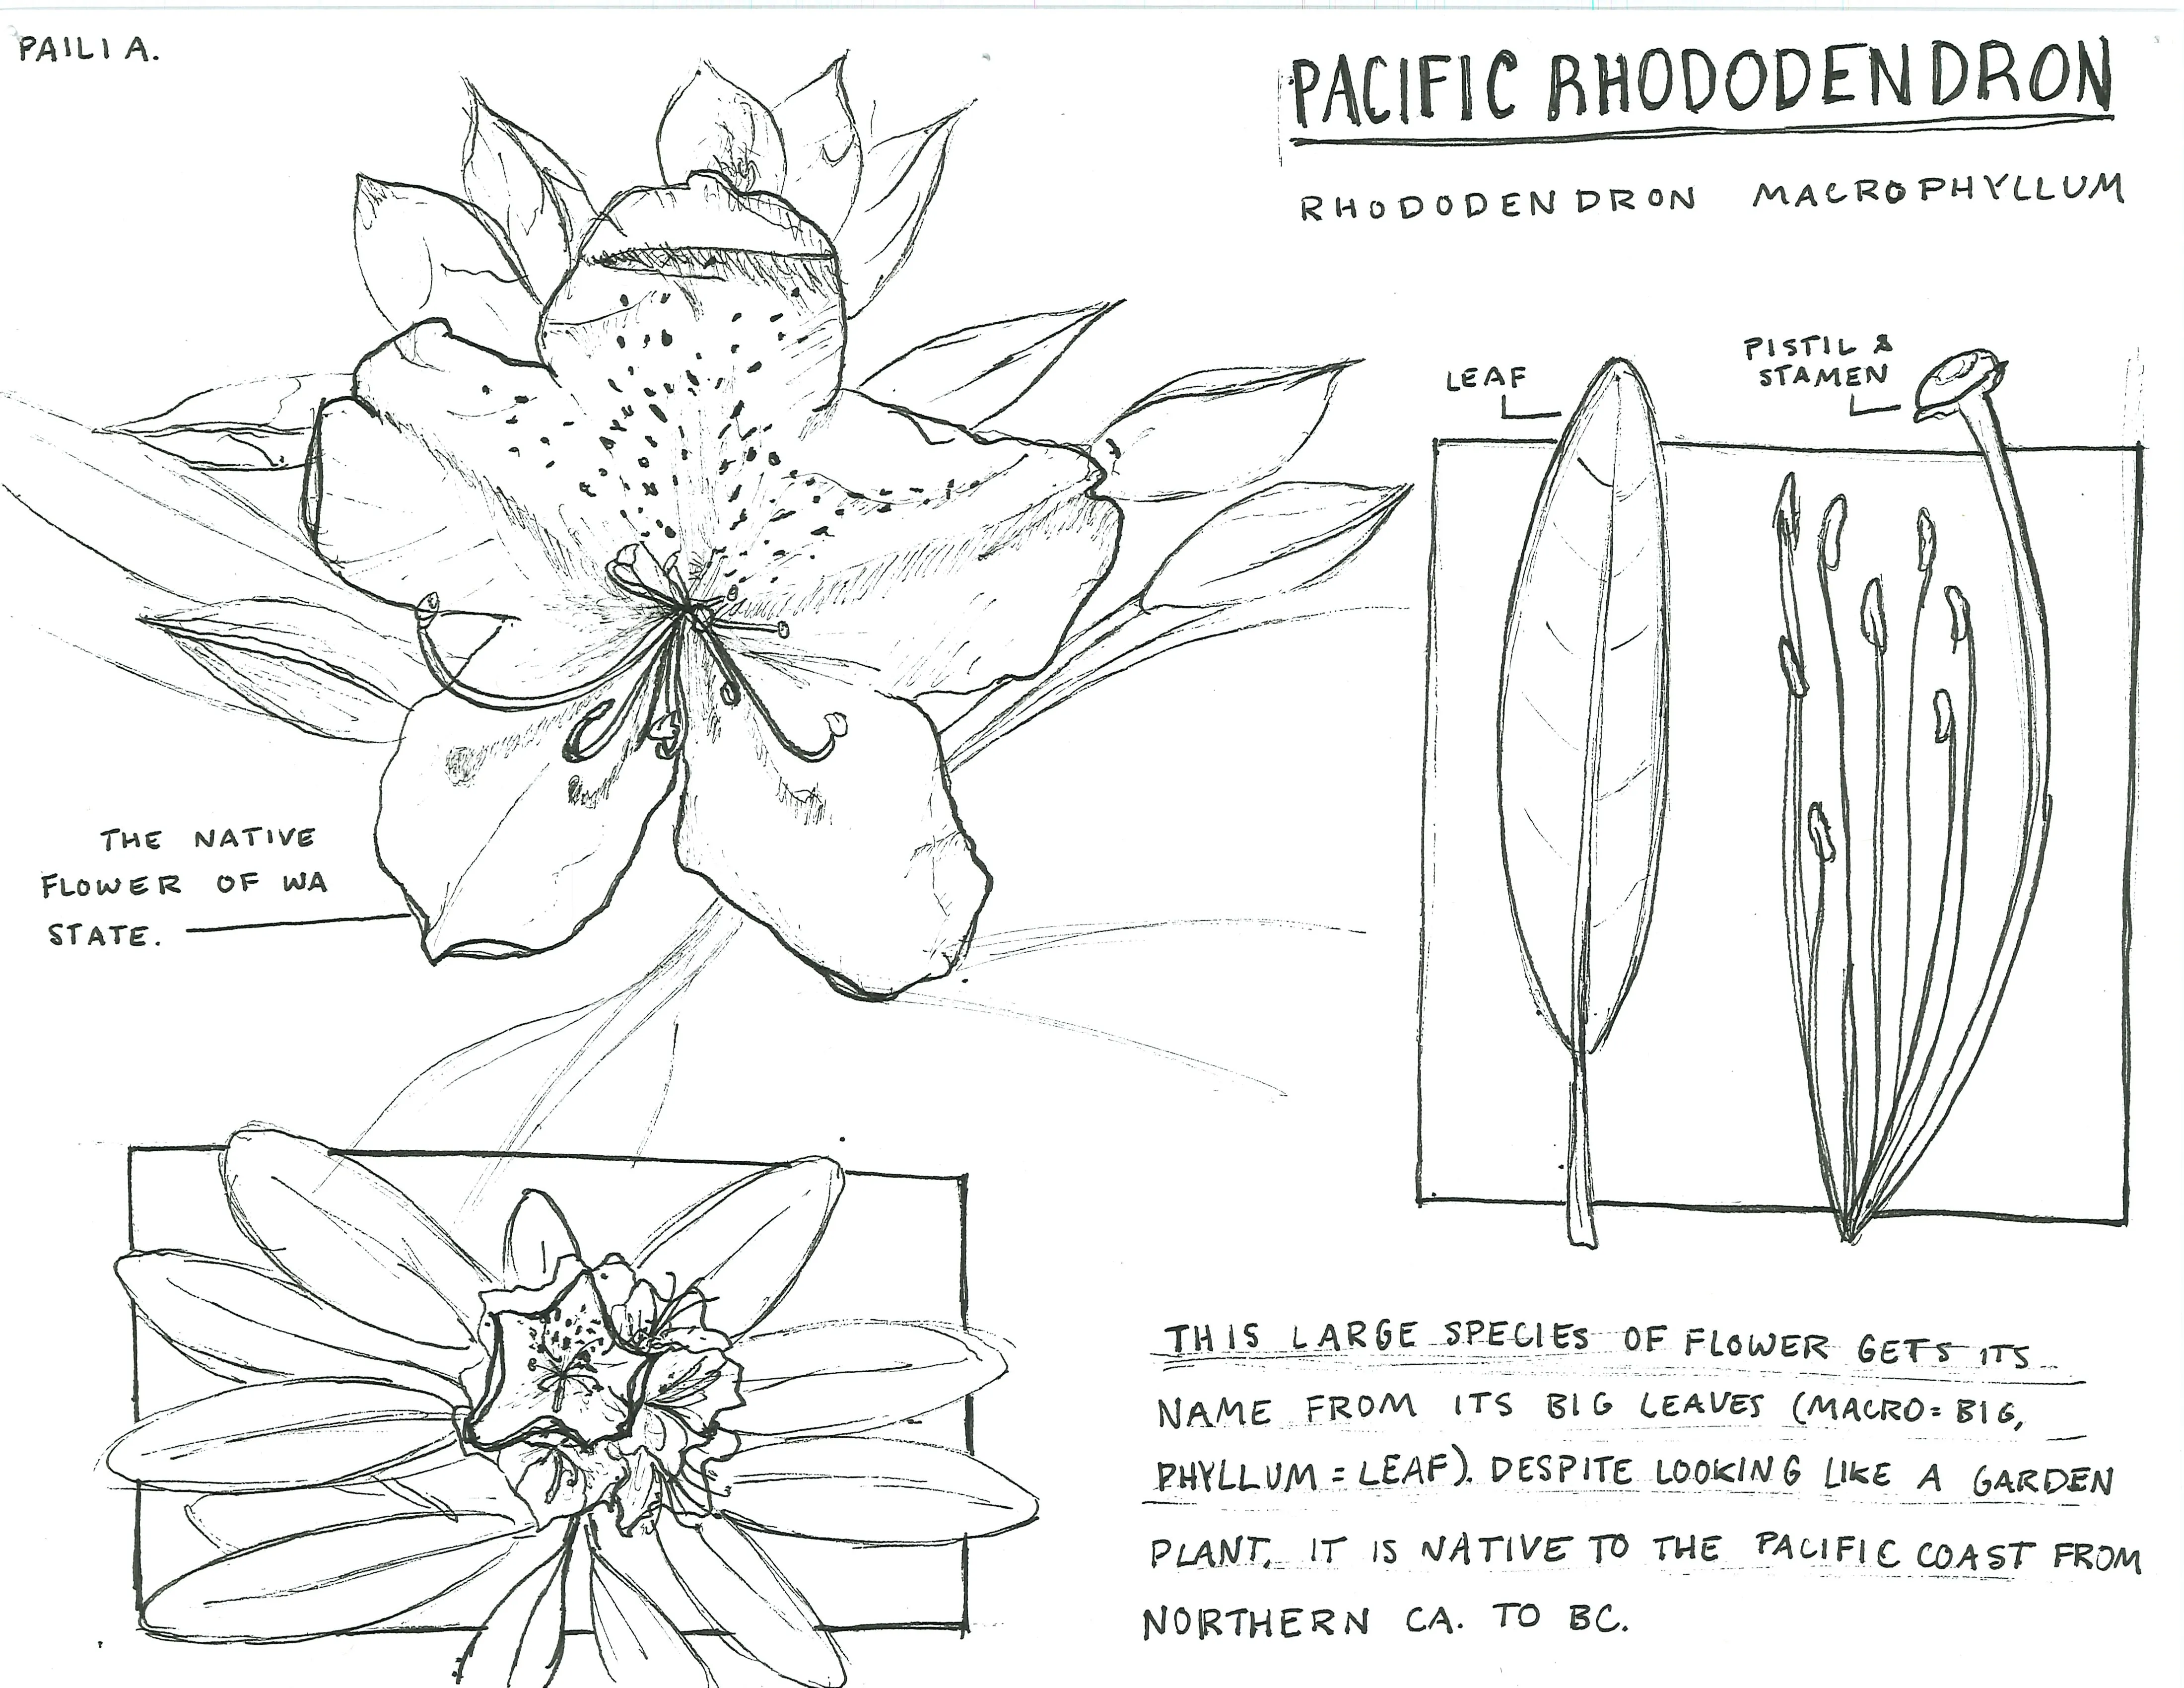 PAILI A.
PACIFIC RHODODENDRON
RHODODENDRON MACROPHYLLUM
LEAF
PISTIL &
STAMEN
THE NATIVE
FLOWER OF WA
STATE.
THIS LARGE SPECIES OF FLOWER GETS ITS
NAME FROM ITS BIG LEAVES (MACRO = BIG,
PHYLLUM = LEAF). DESPITE LOOKING LIKE A GARDEN
PLANT, IT IS NATIVE TO THE PACIFIC COAST FROM
NORTHERN CA. TO BC.